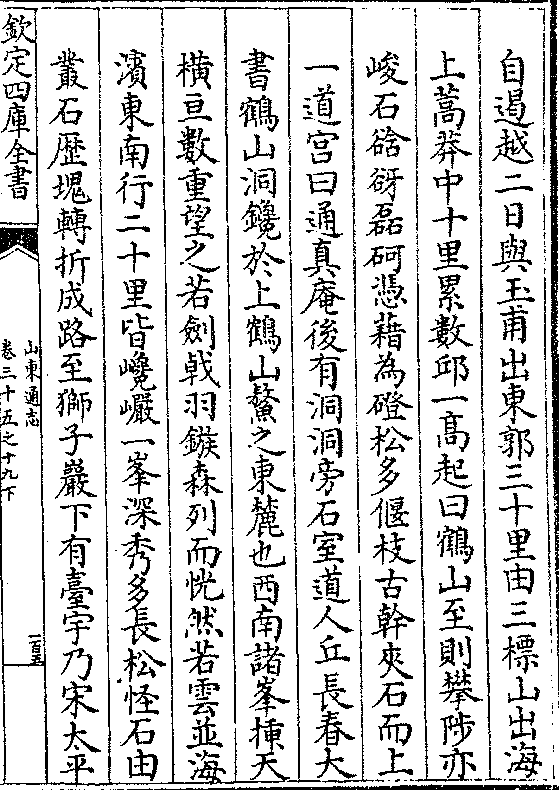 自遏越二日與玉甫出東郭三十里由三標山出海
上蒿莽中十里累數邱一髙起曰鶴山至則攀陟亦
峻石谽谺磊砢憑藉為磴松多偃枝古幹夾石而上
一道宫曰通真庵後有洞洞旁石室道人丘長春大
書鶴山洞鑱於上鶴山鰲之東麓也西南諸峯揷天
横亘數重望之若劍戟羽鏃森列而恍然若雲並海
濱東南行二十里皆巉巗一峯深秀多長松怪石由
叢石歴塊轉折成路至獅子巖下有臺宇乃宋太平
欽定四庫全書
山東通志
卷三十五之十九下
一百五